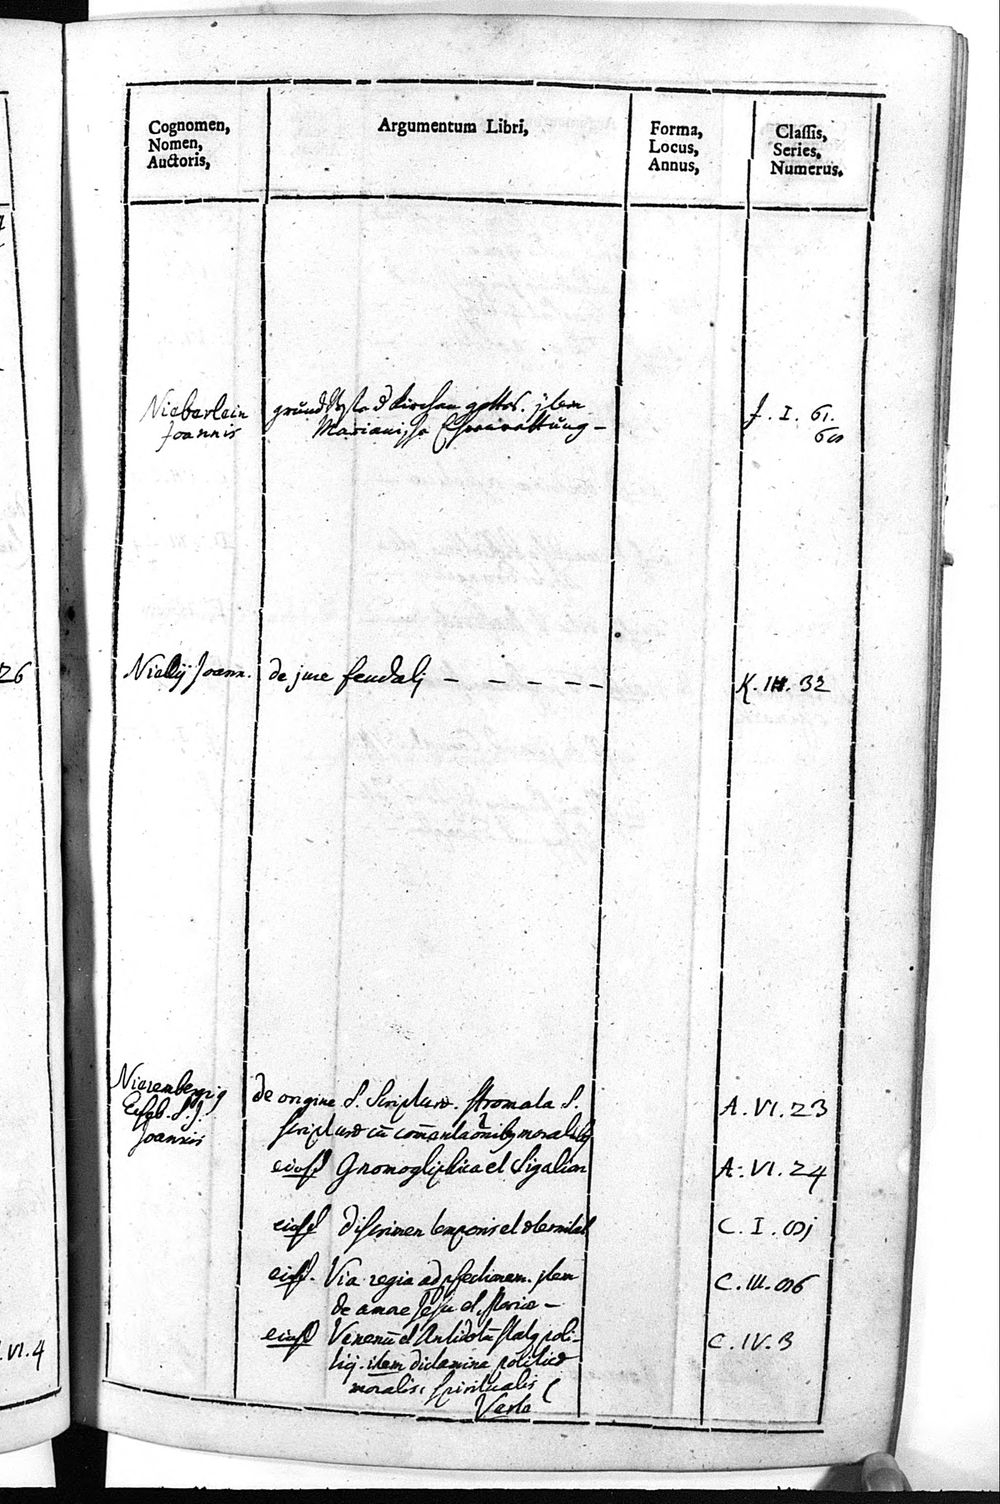 Cognomen,
Nomen,
Auctoris,
Argumentum Libri,
Forma,
Locus,
Annus,
Classis,
Series,
Numerus.
Nieberlein
Joannis
Kirchen gottes. item
Marianische
J. I. 61.
Joann. de jure feudalj - - - - -
K. III. 32
26
Nierembergij
Euseb. S. J.
Joannis
de origine S. Scripturæ. Stromata S.
Scripturæ cū comentaōnibq moralibq
A. VI. 23
eiusd Gnomogliphica et Sigalion
A. VI. 24
eiusd discrimen temporis et æternitat
C. I.
eiusd. Via regia ad pfectionem. item
de amore Jesu et Mariæ -
C. III.
eiusd Venenū et Antidotū statq poli-
tici. item dictamina politicæ
moralis, spiritualis
Verte
C. IV. 3
VI. 4